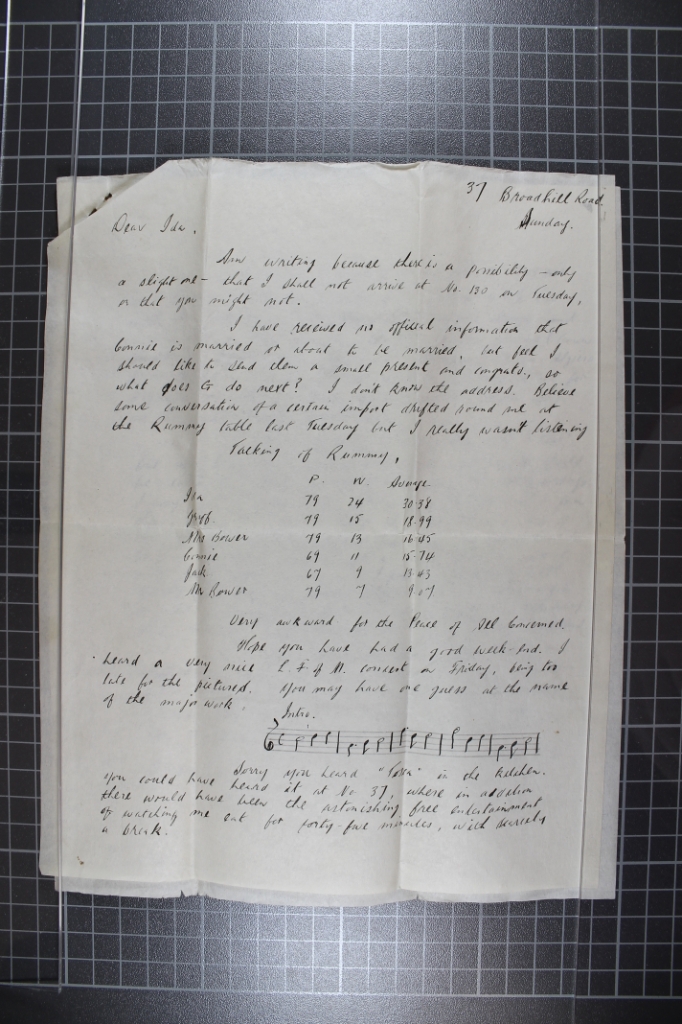 37 Broadhill Road
Sunday.
Dear Ida,
Am writing because there is a possibility – only
a slight one – that I shall not arrive at No. 130 on Tuesday,
or that you might not.
I have received no official information that
Connie is married or about to be married, but feel I
should like to send them a small present and congrats., so
what does Co do next? I don't know the address. Believe
some conversation of a certain import drifted round me at
the Rummy table last Tuesday but I really wasn't listening
Talking of Rummy,
P. W. Average
Ida 79 24 30.38
79 15 18.99
Mrs Bower 79 13 16.45
Connie 69 11 15.94
Jack 67 9 13.43
Mr Bower 79 7 9.07
Very awkward for the Peace of All Concerned.
Hope you have had a good week-end. I
heard a very nice L. F of M. concert on Friday, being too
late for the pictures. You may have one guess at the name
of the major work.
Intro.
Sorry you heard "Tosca" in the kitchen.
You could have heard it at No 37, where in addition
there would have been the astonishing free entertainment
of watching me eat for forty-five minutes, with scarcely
a break.